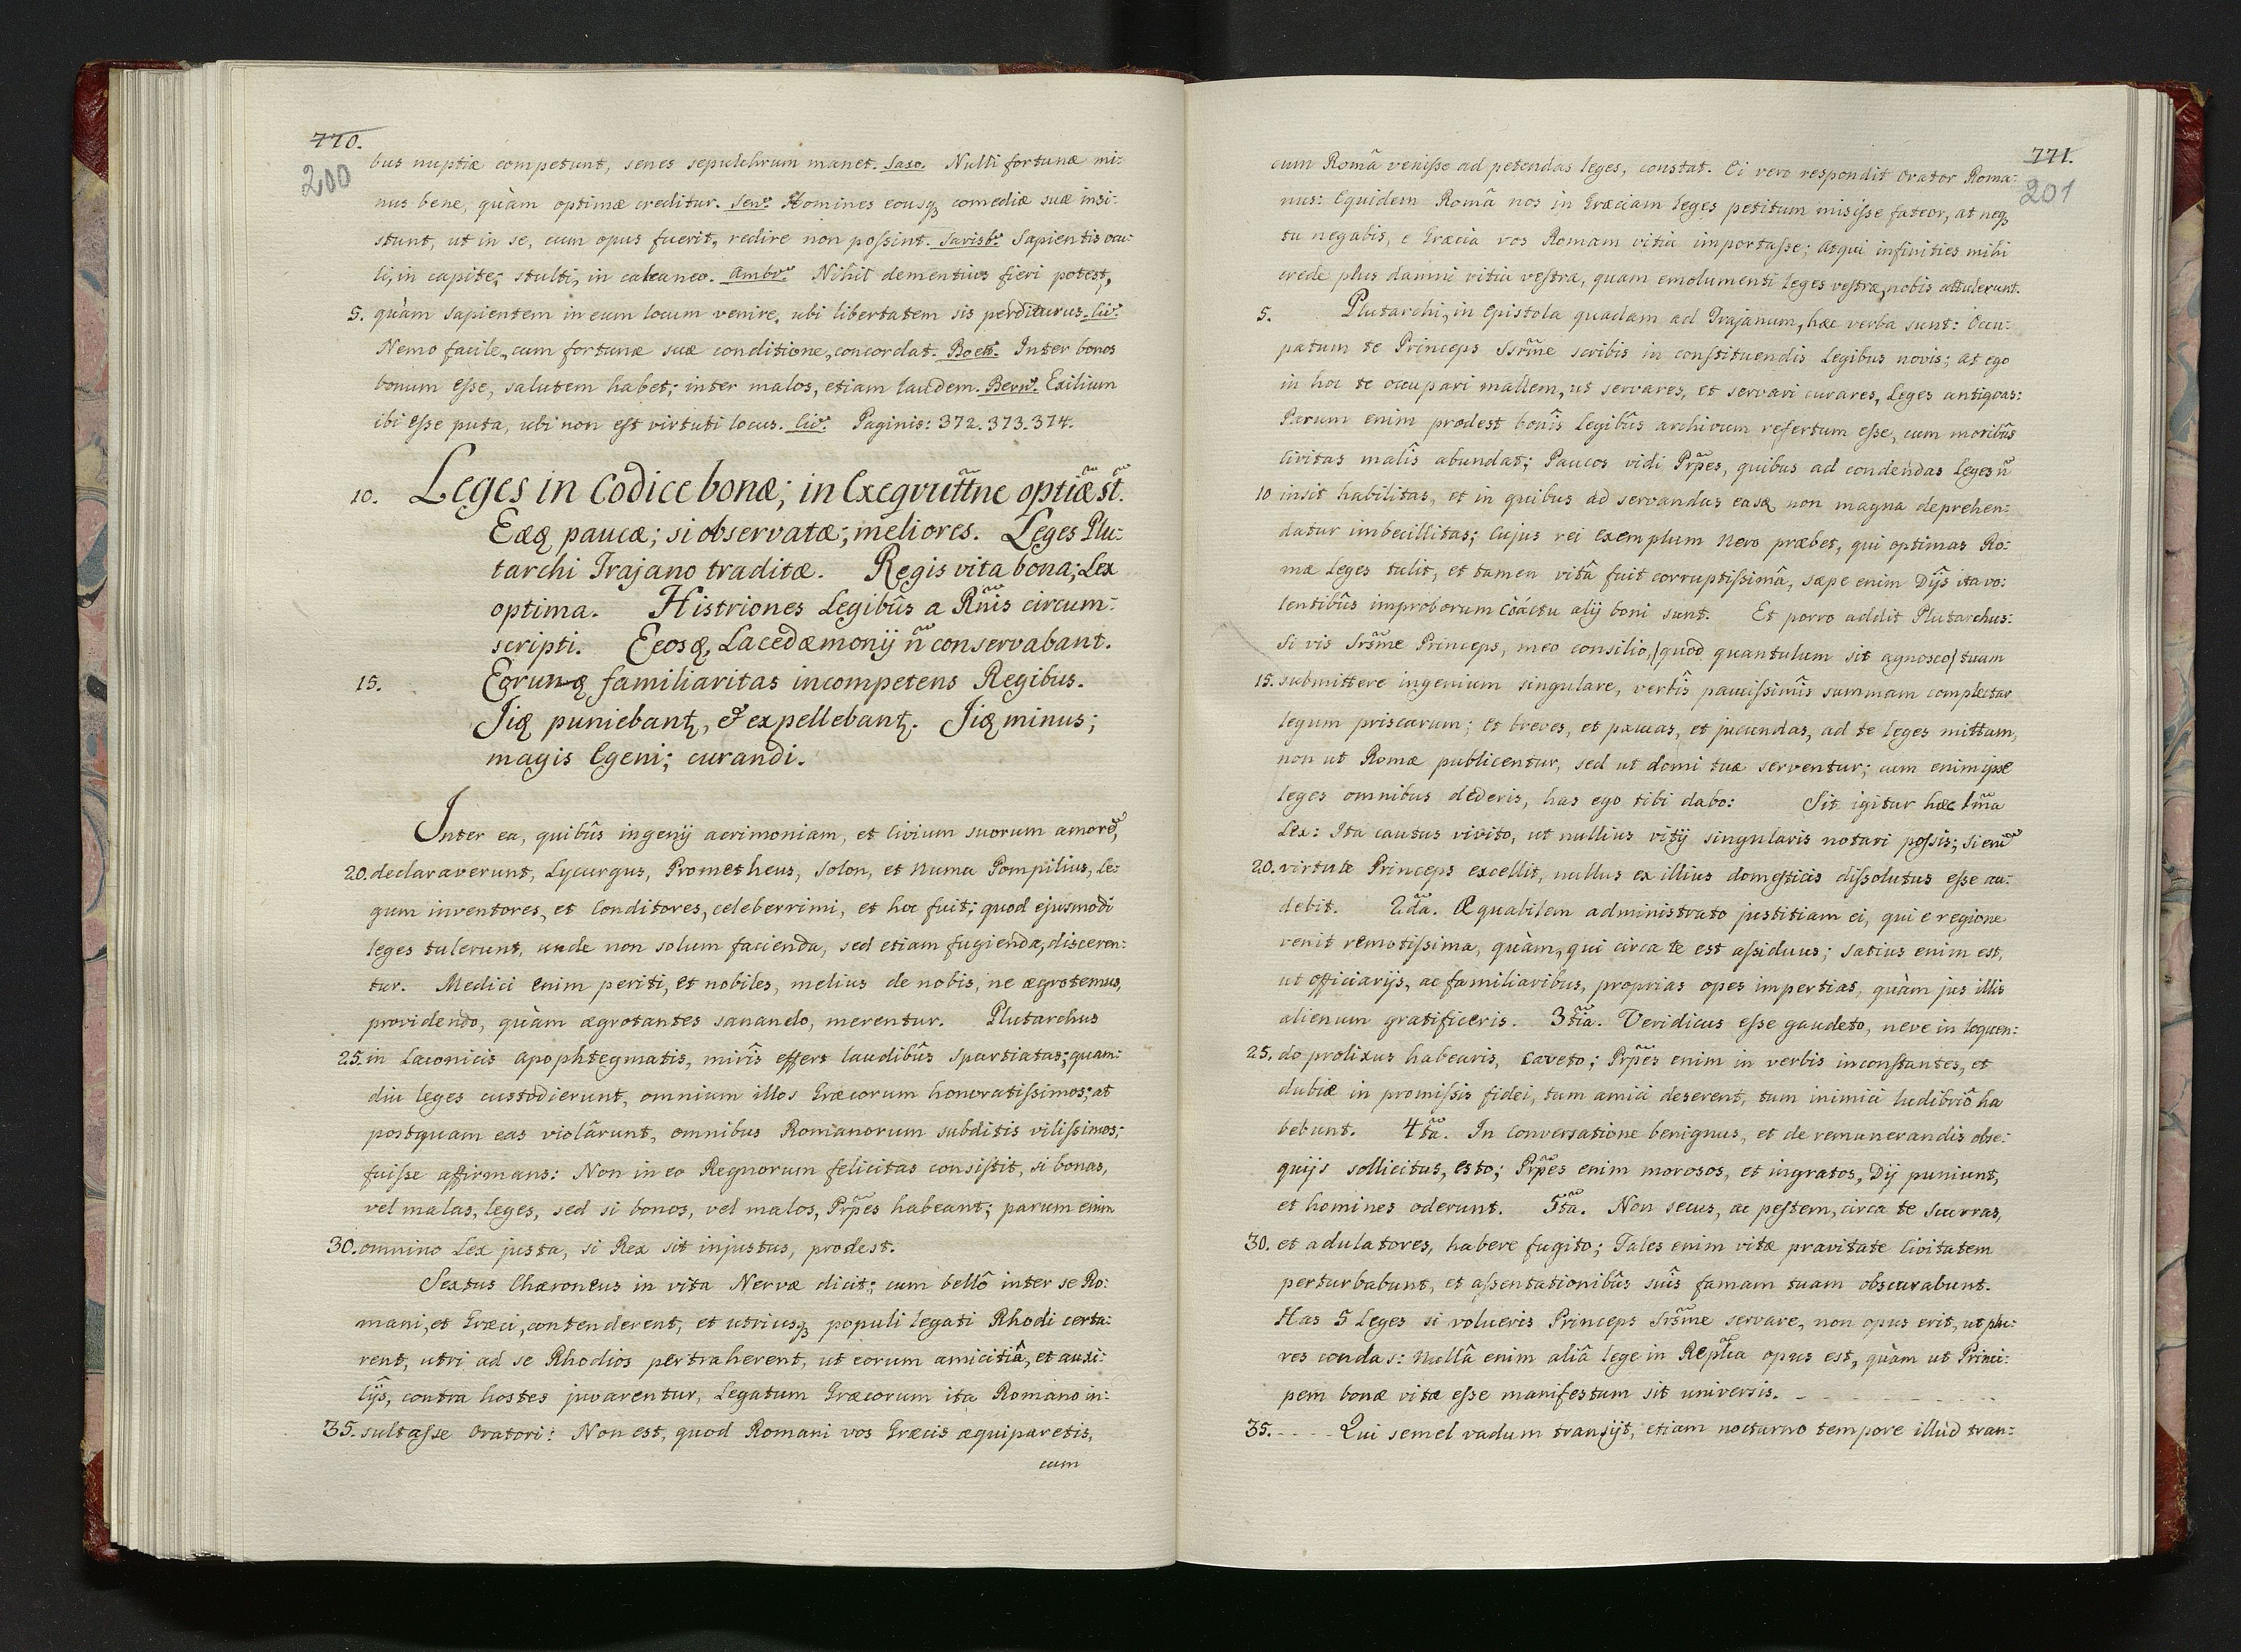 770.
200
bus nuptiæ competunt, senes sepulchrum manet. Saxo. Nulli fortunæ mi:
nus bene, quàm optimæ creditur. Sen. Homines eousq comediæ suæ insi:
stunt, ut in se, cum opus fuerit, redire non possint. Sarisb. Sapientis ocu:
li, in capite; stulti, in calcaneo. Ambr. Nihil dementius fieri potest,
5. quàm sapientem in eum locum venire, ubi libertatem sis perditurus. Civ.
Nemo facile, cum fortunæ suæ conditione, concordat. Boet. Inter bonos
bonum esse, salutem habet; inter malos, etiam laudem. Bern. Exilium
ibi esse puta, ubi non est virtuti locus. Civ. Paginis: 372. 373. 374.
10. Leges in Codice bonæ; in Exeqvut̃ne optiæ st̃.
Eæq paucæ; si observatæ; meliores. Leges Plu:
tarchi Trajano traditæ. Regis vita bona; Lex
optima. Histriones Legibûs a Rñis circum:
scripti. Eeosq, Lacedæmonij ñ conservabant.
15. Eorumq familiaritas incompetens Regibus.
Jiq puniebant, & expellebant. Jiq minus;
magis Egeni; curandi.
Inter ea, quibûs ingenij acrimoniam, et Civium suorum amorẽ,
20. declaraverunt, Lycurgus, Prometheus, Solon, et Numa Pompilius, Le:
gum inventores, et Conditores, celeberrimi, et hoc fuit; quod ejusmodi
leges tulerunt, unde non solum facienda, sed etiam fugienda, disceren:
tur. Medici enim periti, et nobiles, melius de nobis, ne ægrotemus,
providendo, quàm ægrotantes sanando, merentur. Plutarchus
25. in Laconicis Apophtegmatis, mirîs effert laudibûs Spartiatas; quam:
diu leges custodierunt, omnium illos Græcorum honoratissimos; at
postquam eas violârunt, omnibus Romanorum subditis vilissimos;
fuisse affirmans: Non in eo Regnorum felicitas consistit, si bonas,
vel malas, leges, sed si bonos, vel malos, Pr̃pes habeant; parum enim
30. omnino Lex justa, si Rex sit injustus, prodest.
Sextus Chæroneus in vita Nervæ dicit; cum bellô inter se Ro:
mani, et Græci, contenderent, et utriusq populi legati Rhodi certa:
rent, utri ad se Rhodios pertraherent, ut eorum amicitiâ, et auxi:
lijs, contra hostes juvarentur, Legatum Græcorum ita Romano in:
35. sultasse Oratori: Non est, quod Romani vos Græcis æquiparetis,
cum
771.
201
cum Romã venisse ad petendas leges, constat. Ei vero respondit Orator Roma:
nus: Equidem Româ nos in Græciam leges petitum misisse fateor, at neq
tu negabis, e Græcia vos Romam vitia importasse; Atqui infinities mihi
crede plus damni vitia vestra, quam emolumenti leges vestræ, nobis attulerunt.
5. Plutarchi, in Epistola quadam ad Trajanum, hæc verba sunt: Occu:
patum te Princeps Ssr̃me scribis in constituendis Legibus novis; At ego
in hoc te occupari mallem, ut servares, et servari curares, Leges antiqvas:
Parum enim prodest bonîs Legibûs archivum refertum esse, cum moribûs
Civitas malîs abundat; Paucos vidi Pr̃pes, quibus ad condendas Leges ñ
10 insit habilitas, et in quibus ad servandas easq non magna deprehen:
datur imbecillitas; Cujus rei Exemplum Nero præbet, qui optimas Ro:
mæ Leges tulit, et tamen vitâ fuit corruptissimâ, sæpe enim Dijs ita vo:
lentibûs improborum coáctu alij boni sunt. Et porro addit Plutarchus:
Si vis Srs̃me Princeps, meo consilio, /quod quantulum sit agnosco/ tuam
15. submittere ingenium singulare, verbîs paucissimîs summam complectar
legum priscarum; Et breves, et paucas, et jucundas, ad te leges mittam,
non ut Romæ publicentur, sed ut domi tuæ serventur; cum enim ipse
leges omnibus dederis, has ego tibi dabo: Sit igitur hæc 1m̃a
Lex: Ita cautus vivito, ut nullius vitij singularis notari possis; Si enĩ
20. virtute Princeps excellit, nullus ex illius domesticis dissolutus esse au:
debit. 2da. Æquabilem administrato justitiam ei, qui e regione
venit remotissima, quàm, qui circa te est assiduus; Satius enim est,
ut Officiarijs, ac familiaribus, proprias opes impertias, quàm jus illis
alienum gratificeris. 3tia. Veridicus esse gaudeto, neve in loquen:
25. do prolixus habearis, caveto; Pr̃pes enim in verbis inconstantes, et
dubiæ in promissis fidei, tum amici deserent, tum inimici ludibriô ha
bebunt. 4ta. In conversatione benignus, et de remunerandis obse:
quijs sollicitus, esto; Pr̃pes enim morosos, et ingratos, Dij puniunt,
et homines oderunt. 5ta. Non secus, ac pestem, circa te scurras,
30. et adulatores, habere fugito; Tales enim vitæ pravitate Civitatem
perturbabunt, et assentationibûs suîs famam tuam obscurabunt.
Has 5 Leges si volueris Princeps Srs̃me servare, non opus erit, ut plu:
res condas: Nullâ enim aliâ lege in Repl̃ca opus est, quàm ut Princi:
pem bonæ vitæ esse manifestum sit universis. - - - - - -
35. - - - - Qui semel vadum transijt, etiam nocturno tempore illud tran: